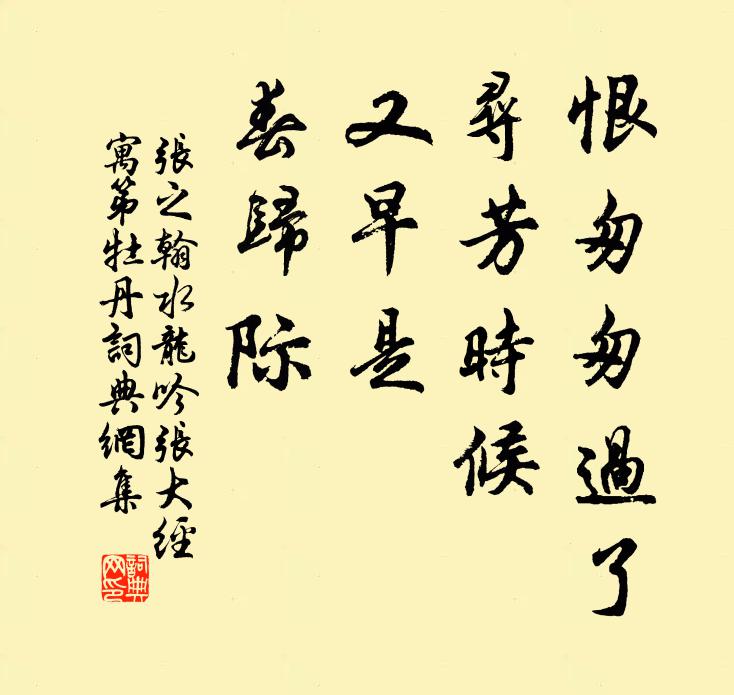 恨匆匆過了
尋芳時候
又早是
春歸际
張之翰水龍吟張大經
寓第牡丹詞典網集
詞典网印